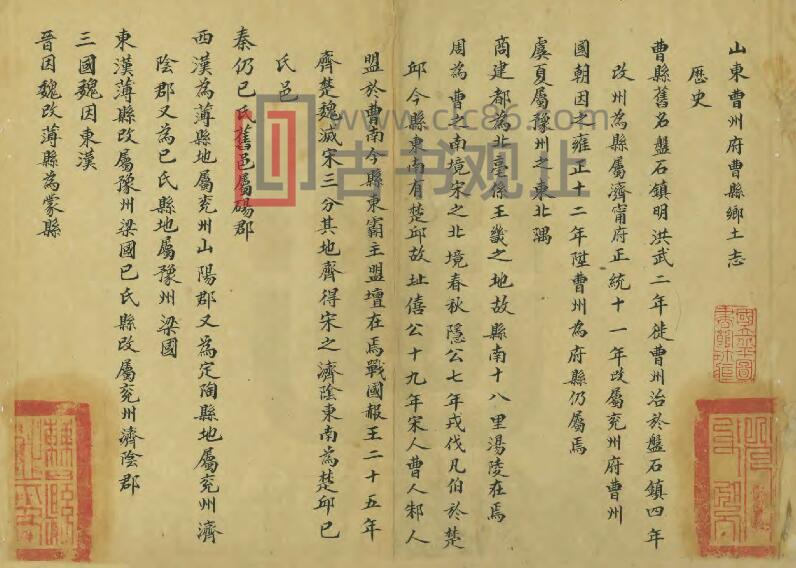 山東曹州府曹縣鄉土志
歷史
曹縣舊名盤石鎮明洪武二年徙曹州治於盤石鎮四年
改州為縣屬濟甯府正統十一年改屬兖州府曹州
國朝因之雍正十二年陞曹州為府縣仍屬焉
虞夏屬豫州之東北隅
商建都為北亳係王畿之地故縣南十八里湯陵在焉
周為曹之南境宋之北境春秋隱公七年戎伐凡伯於楚
邱今縣東南有楚邱故址僖公十九年宋人曹人邾人
盟於曹南今縣東霸主盟壇在焉戰國赧王二十五年
齊楚魏滅宋三分其地齊得宋之濟陰東南為楚邱已
氏邑
秦仍已氏舊邑屬碭郡
西漢為薄縣地屬兖州山陽郡又為定陶縣地屬兖州濟
陰郡又為已氏縣地屬豫州梁國
東漢薄縣改屬豫州梁國已氏縣改屬兖州濟陰郡
三國魏因東漢
晉因魏改薄縣為蒙縣
www.ctc86.com
古书观止